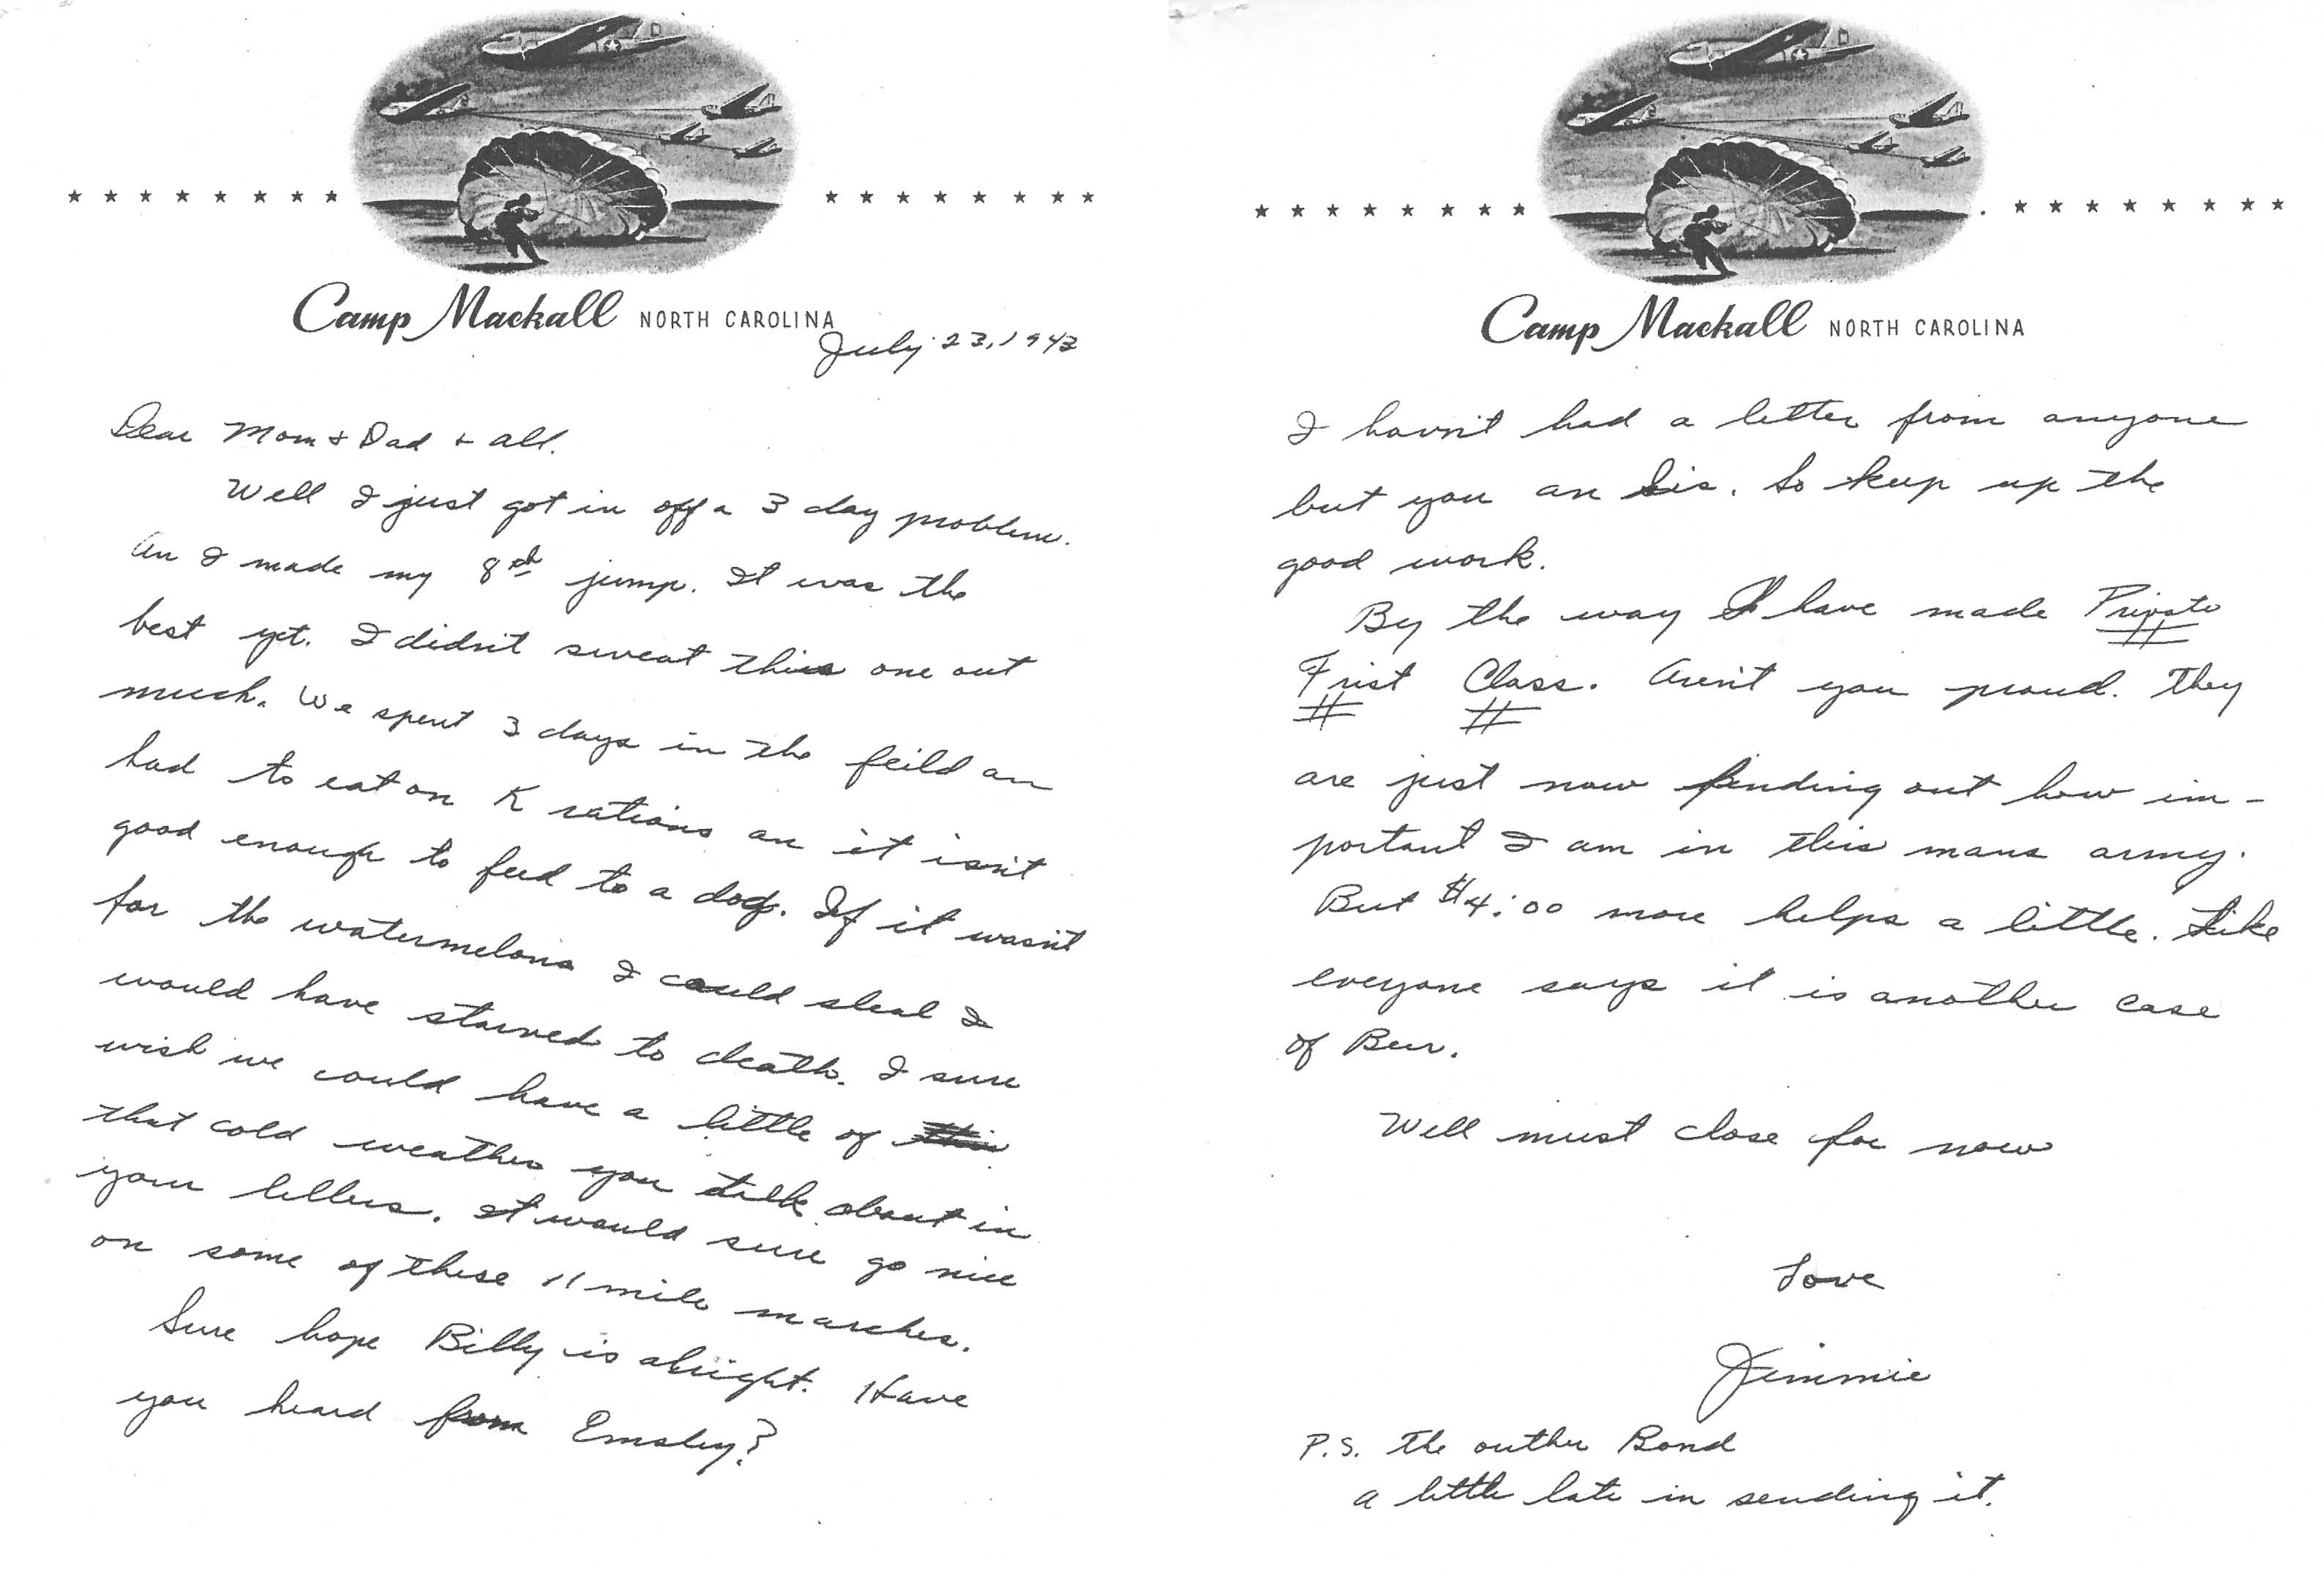 Camp Mackall NORTH CAROLINA
July 23, 1943
Dear Mom & Dad & all.
Well I just got in off a 3 day problem.
An I made my 8th jump. It was the
best yet. I didn't sweat this one out
much. We spent 3 days in the feild an
had to eat on K rations an it isn't
good enough to feed to a dog. If it wasn't
for the watermelons I could steal I
would have starved to death. I sure
wish we could have a little of
that cold weather you talk about in
your letters. It would sure go nice
on some of these 11 mile marches.
Sure hope Billy is alright. Have
you heard from Emsley?
Camp Mackall NORTH CAROLINA
I havn't had a letter from anyone
but you an Sis. So keep up the
good work.
By the way I have made Private
Frist Class. Aren't you proud. They
are just now finding out how im-
portant I am in this mans army.
But $4:00 more helps a little. Like
everyone says it is another case
of Beer.
Well must close for now
Love
Jimmie
P.S. The outher Bond
a little late in sending it.